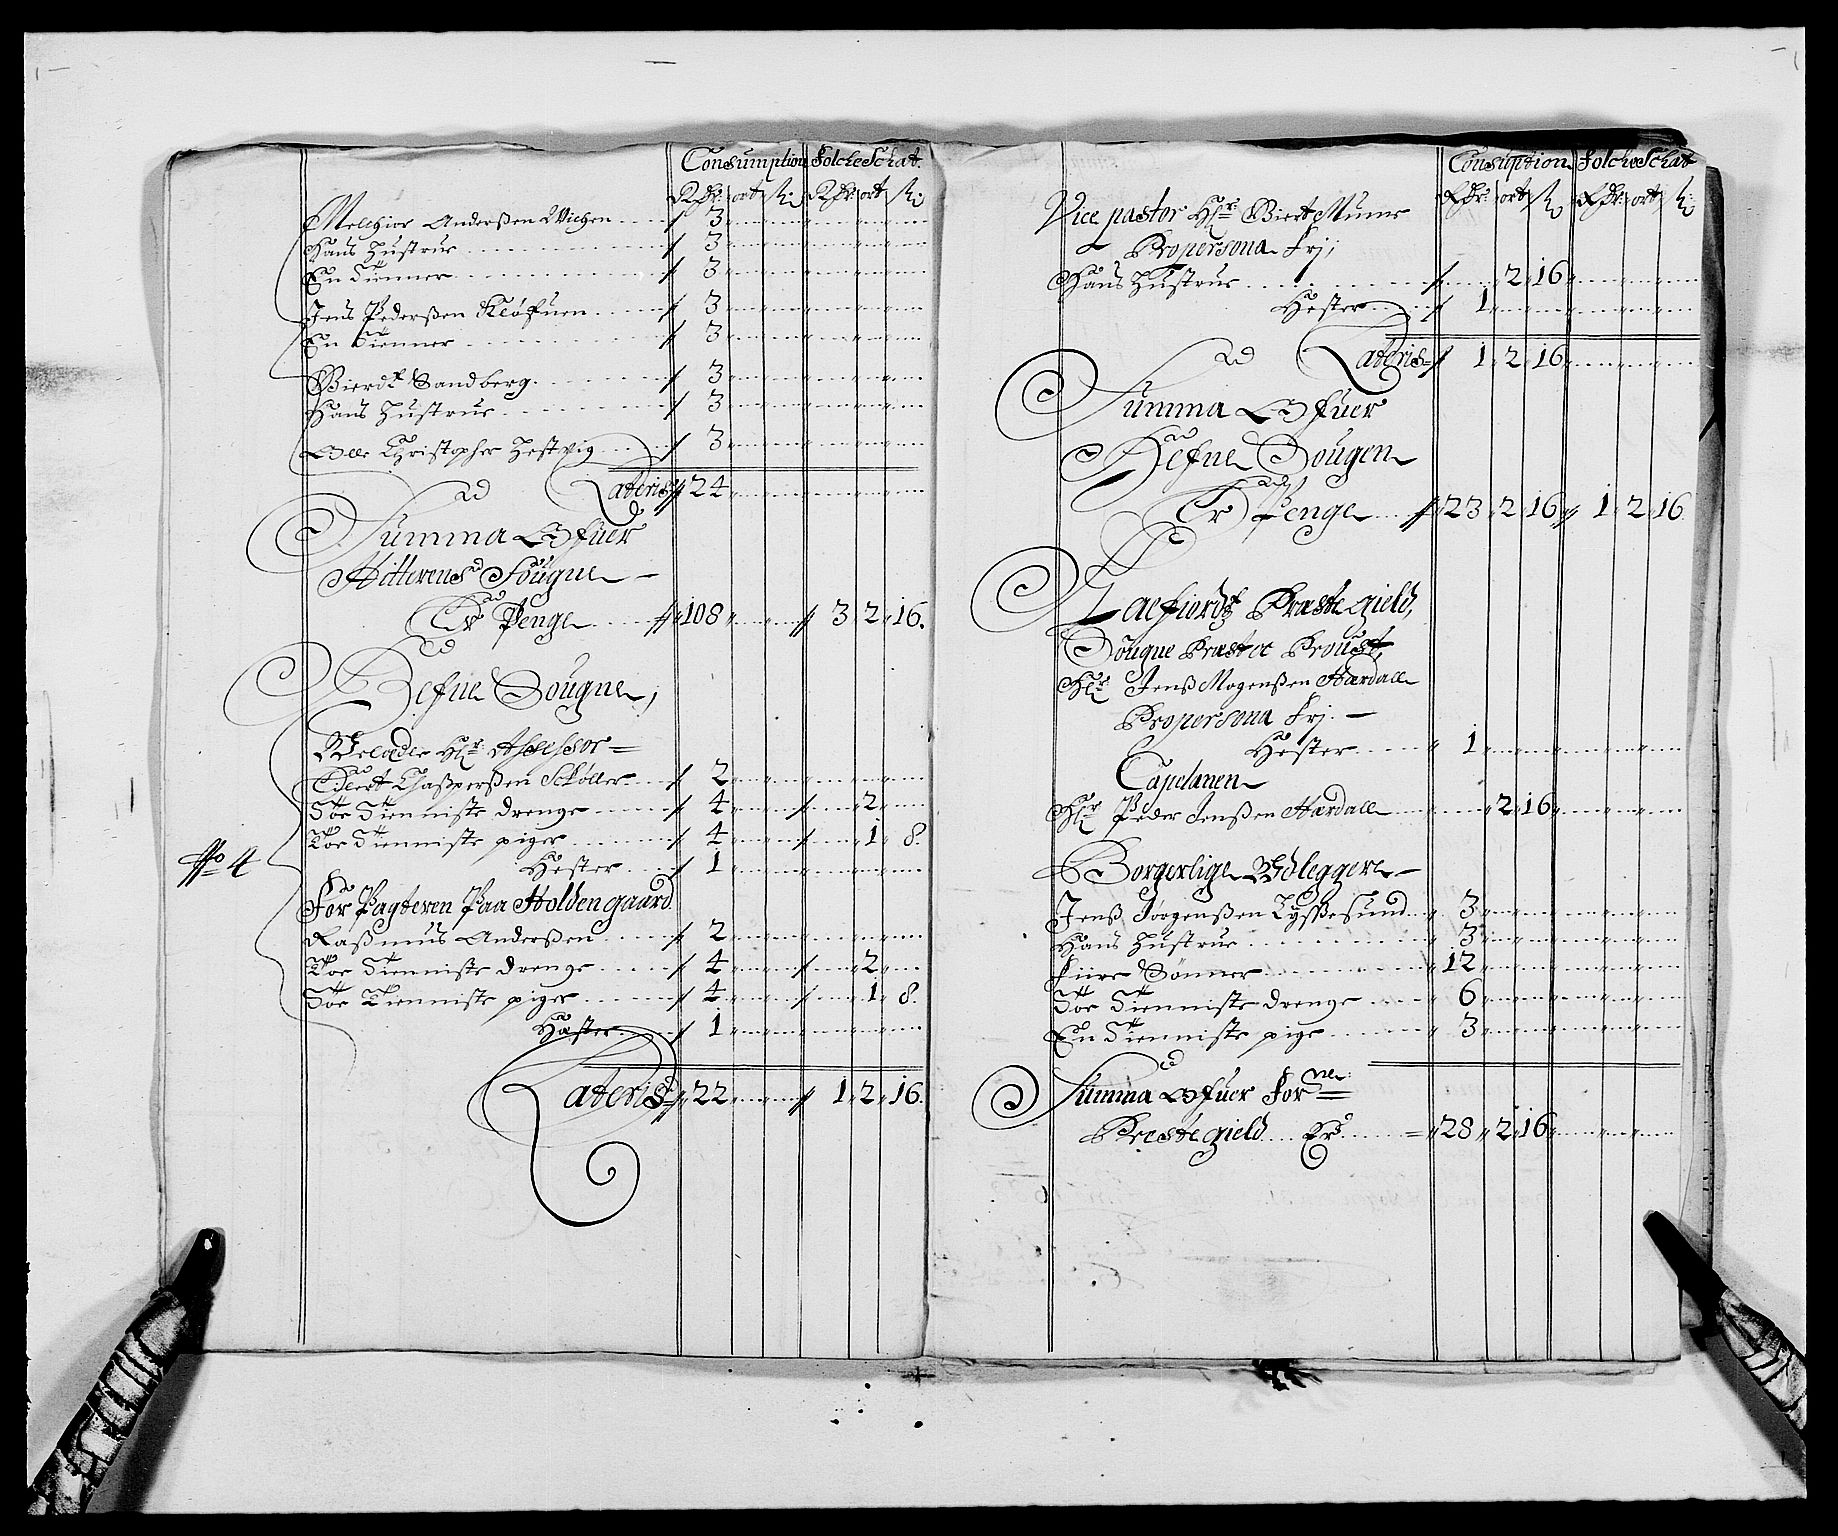 Consumption FolcheSchat.
Rdr: ort ß Rdr: ort ß
Melchior Anderßen Wichen 3
Hans Hustrue 3
En Tienner 3
Jens Pederßen Kløfuen 3
En Tienner 3
Bierdt Sandberg 3
Hans Hustrue 3
Olle Christopher 3
Lateris 24
Summa Ofuer
Hitterens Sougne
Er Penge 108 3 2 16.
Hefne Sougne,
Welædle Hr: Assessor
Edert Chaßperßen Schøller 2
Toe Tienniste drenge 4 2
Toe Tienniste piger 4 1 8.
No 4
Hester 1
For Pagteren Paa Holden gaard
Raßmus Anderßen 2
Toe Tienniste drenge 4 2
Toe Tienniste piger 4 1 8.
Hæster 1
Lateris 22 1 2 16.
Consuption FolcheSchat
Rdr: ort ß Rdr: ort ß
Vice pastor Hr: Biert Mumr
Propersona Frj;
Hans Hustrue 2 16
Hester 1
Lateris 1 2 16
Summa Ofuer
Hefne Sougen
Er Penge 23 2 16 1 2 16
Aaefiordt Præste gield,
Sougne Præst oc Proust,
Hr: Jenß Mogenßen Hærdall
Propersona Frj.
Hester 1
Capelanen
Hr Peder Jenßen Hærdall 2 16
Borgerlige Udleggere
Jenß Jørgenßen Lyssesund 3
Hans Hustrue 3
Fiire Sønner 12
Toe Tienniste drenge 6
En Tienniste pige 3
Summa Ofuer For ne:
Præste gield Er 28 2 16